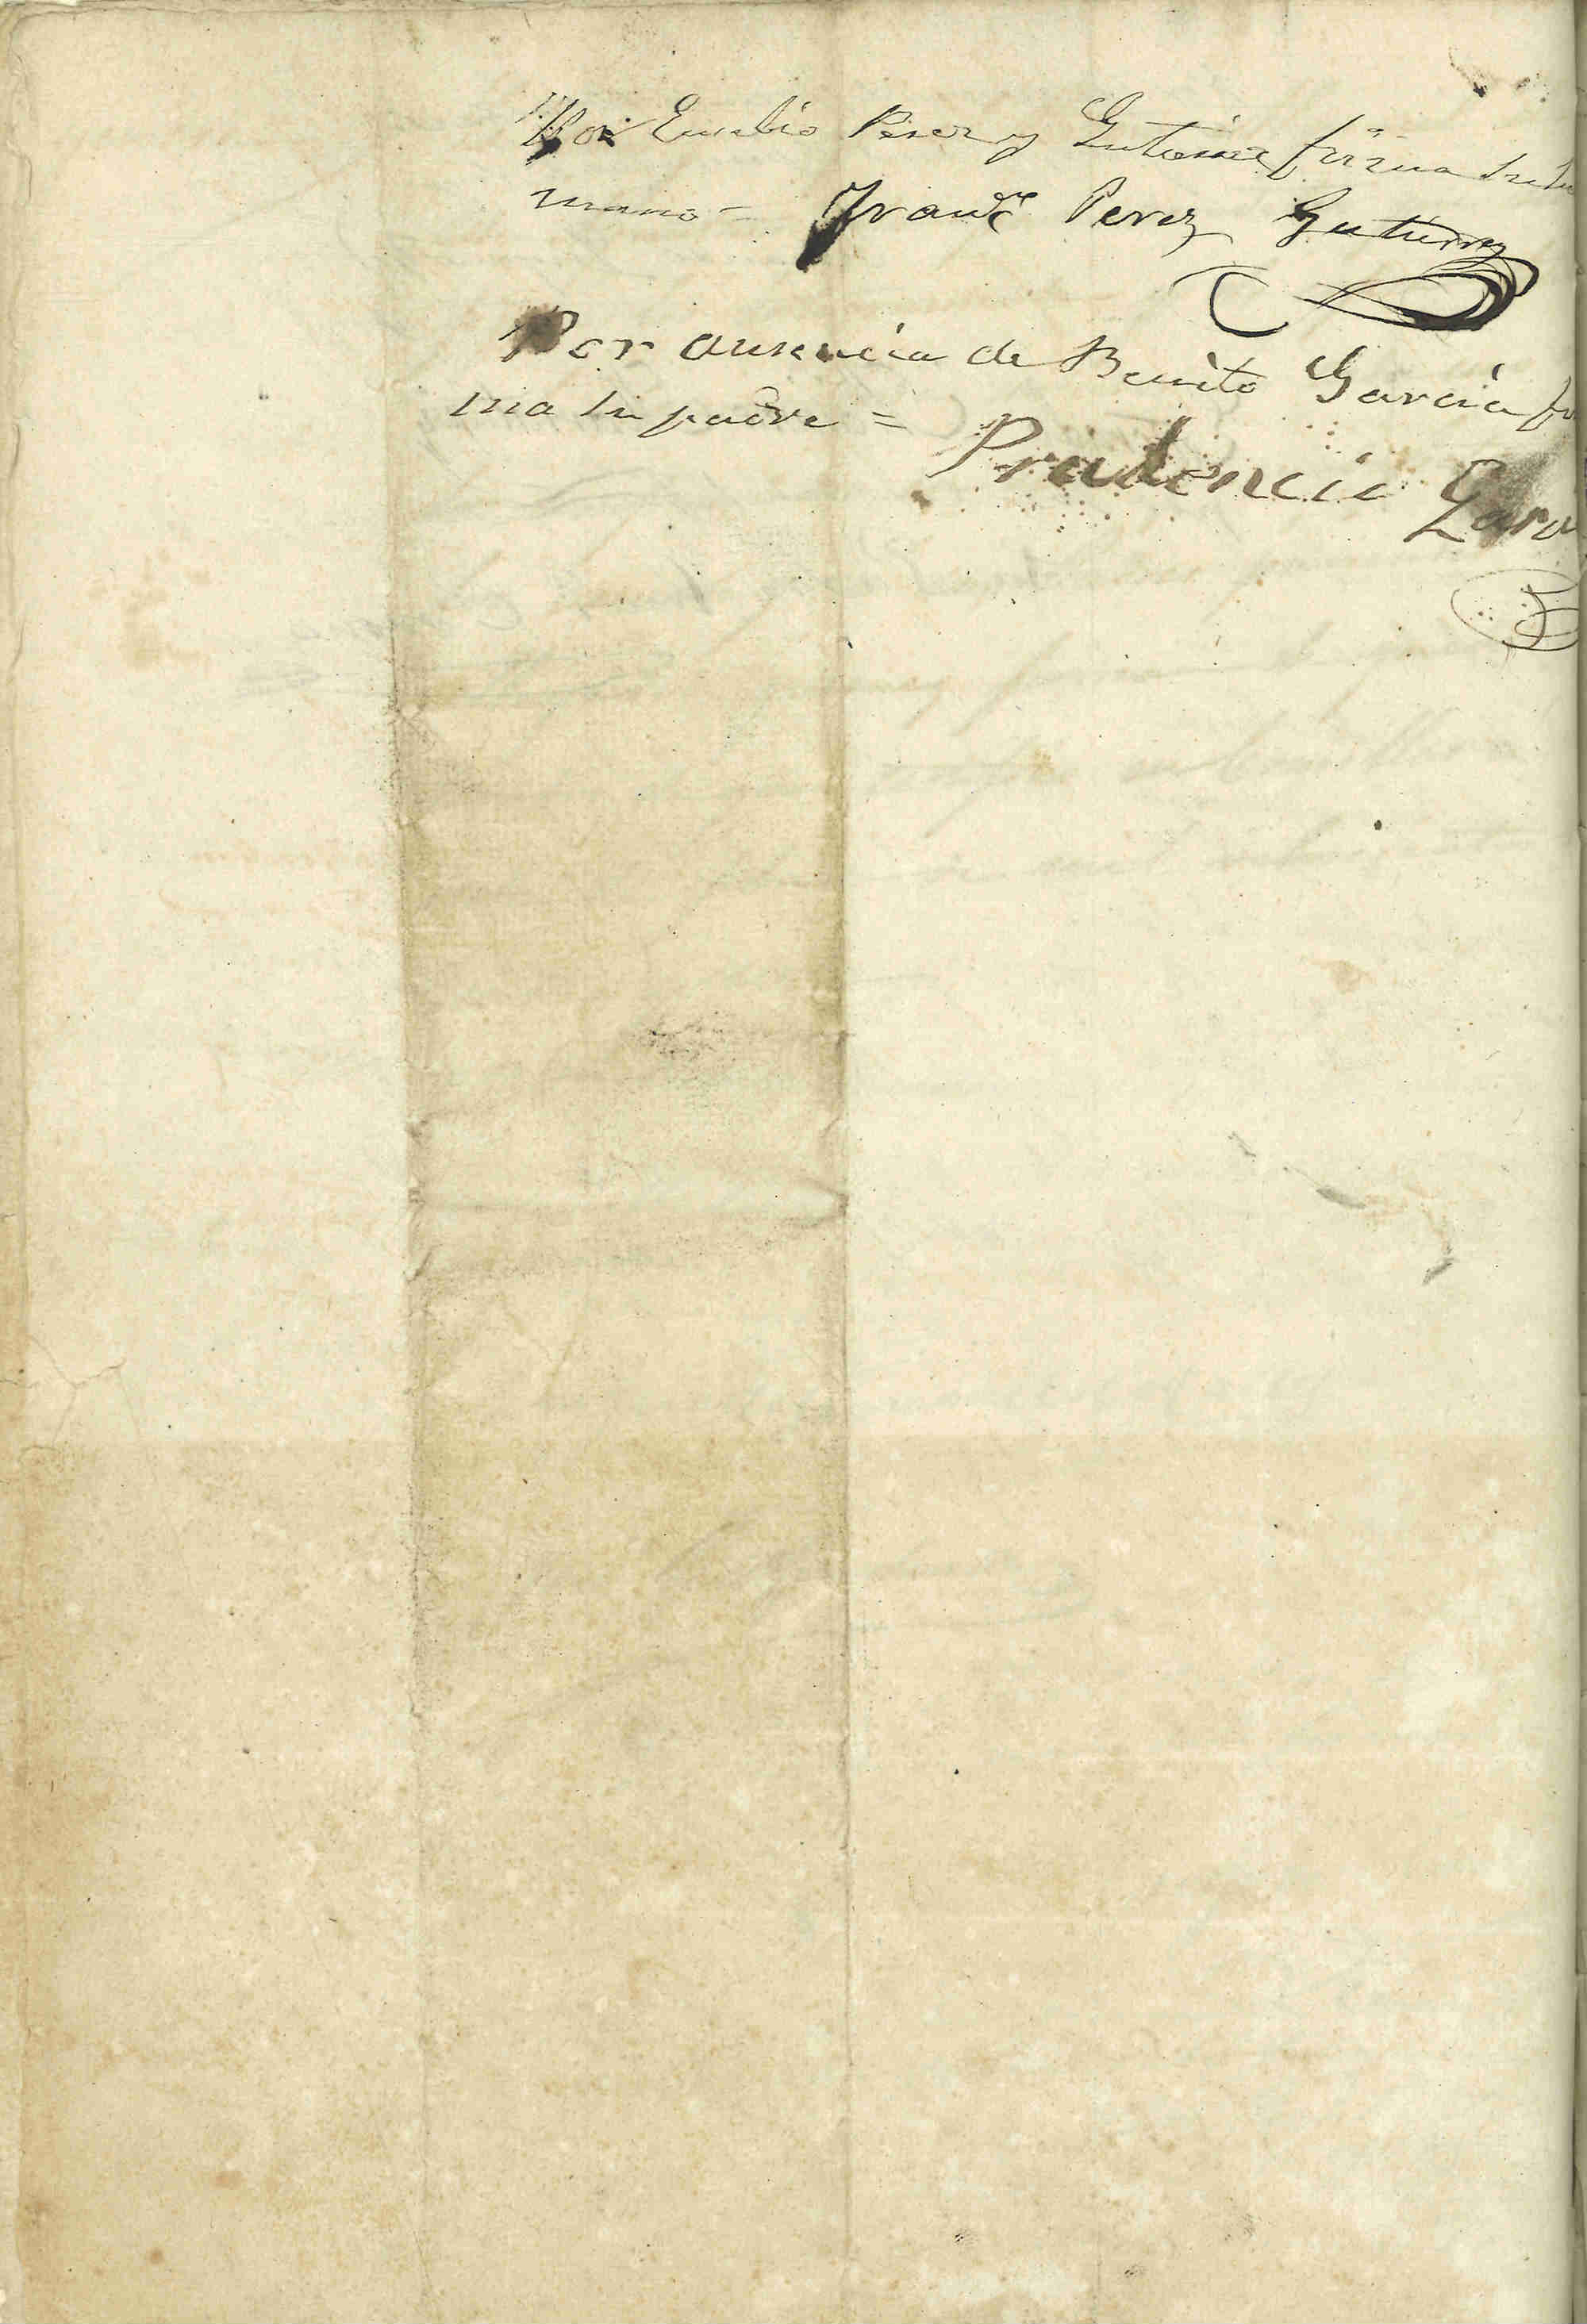 Por Eusebio Perez y Gutierrez firma su
mano = Franco Perez Gutierrez
Por ausencia de Benito Garcia fir
ma su padre =
Prudencio
Gar